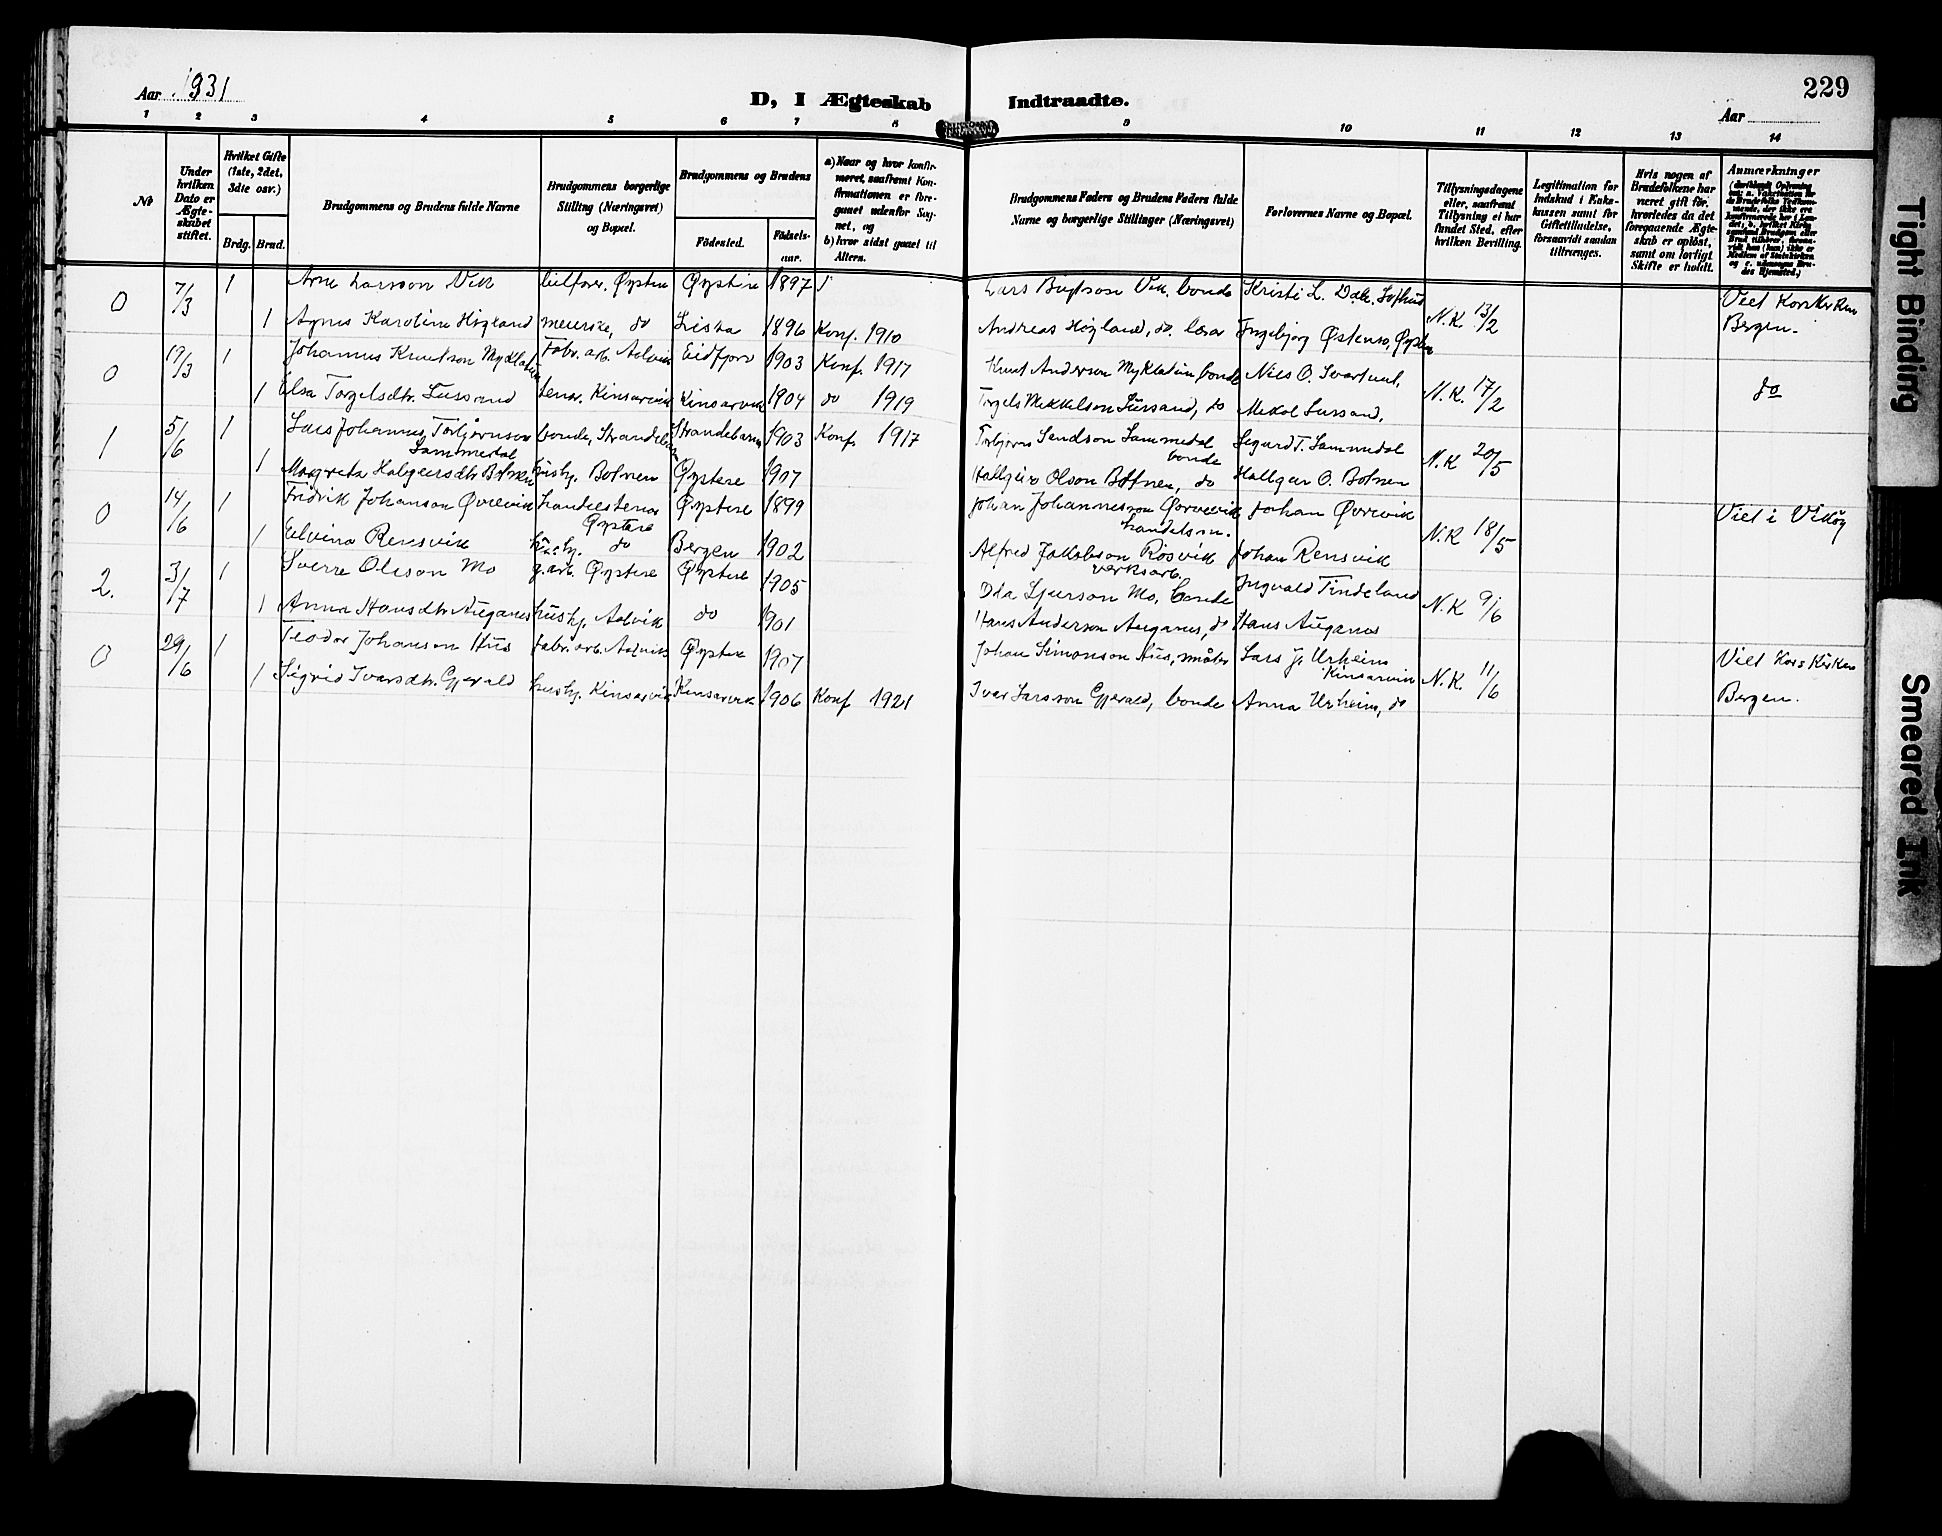 229
Aar 1931
D, I Ægteskab Indtraadte.
Aar
1 2 3 4 5 6 7 8 9 10 11 12 13 14
No
Under hvilken Dato er Ægteskabet stiftet.
Hvilket Gifte (1ste, 2det, 3die osv.)
Brdg. Brud.
Brudgommens og Brudens fulde Navne
Brudgommens borgerlige Stilling (Næringsvei) og Bopæl.
Brudgommens og Brudens
Födested.
Födselsaar.
a) Naar og hvor konfirmeret, saafremt Konfirmationen er foregaaet udenfor Sognet, og
b) hvor sidst gaaet til Alters.
Brudgommens Faders og Brudens Faders fulde Navne og borgerlige Stillinger (Næringsvei)
Forlovernes Navne og Bopæl.
Tillysningsdagene eller, saafremt Tillysning ei har fundet Sted, efter hvilken Bevilling.
Legitimation for Indskud i Enkekassen samt for Giftetilladelse, forsaavidt saadan tiltrænges.
Hvis nogen af Brudefolkene har været gift för, hvorledes da det foregaaende Ægteskab er oplöst, samt om lovligt Skifte er holdt.
Anmærkninger
0 7/3 1 Arne Larsson Vik bilfører, Øystese Øystese 1897 Lars Bryteson Vik, bonde Kristi L. Dale, Lofthus N.K. 13/2 Viet Korskirken
1 Agnes Karoline Høgland meierske, do Lista 1896 Konf. 1910 Andreas Høgland, do. Ingebjørg Østensø, Øystese Bergen.
0 19/3 1 Johannes Knutson Myklatun Fabr. arb. Aalvik Eidfjord 1903 Konf. 1917 Knut Anderson Myklatun bonde Nils O. N.K. 17/2 do
1 Elsa Torgelsdtr. Lussand Kinsarvik Kinsarvik 1904 do 1919 Torgels Mikkelson Lussand, do Mikal Lussand,
1 5/6 1 Lars Johannes Torbjørnson Sammedal bonde, Strandebarm Strandebarm 1903 Konf 1917 Torbjørn Sammedal bonde Segurd T. Sammedal N.K 20/5
1 Margreta Halgeirsdtr Botnen hush. Botnen Øystese 1907 Hallgeir Olson Botnen, do Hallgeir O. Botnen
0 14/6 1 Fredrik Johanson Øvrevik Øystese Øystese 1899 Johan Johannesson Øvrevik handelsm. Johan Øvrevik N.K 18/5 Viet i Vikøy
1 Elvina Rensvik hush. do Bergen 1902 Alfred Jakobson Røsvik verksarb. Johan Rensvik
2. 3/7 1 Sverre Olsson Mo g.arb. Øystese Øystese 1905 Ola Sjurson Mo, bonde Ingvald Tindeland N.K 9/6
1 Anna Hansdtr Auganes hush. Aalvik do 1901 Hans Anderson Auganes, do Hans Auganes
0 29/6 1 Teodor Johanson Hus Fabr. arb. Aalvik Øystese 1907 Johan Simonson Hus, Lars J. Urheim Kinsarvik N.K. 11/6 Viet Korskirken
1 Sigrid Ivarsdtr. Gjerald hush. Kinsarvik Kinsarvik 1906 Konf 1921 Ivar Larsson Gjerald, bonde Anna Urheim, do Bergen.
Tight Binding
Smeared Ink